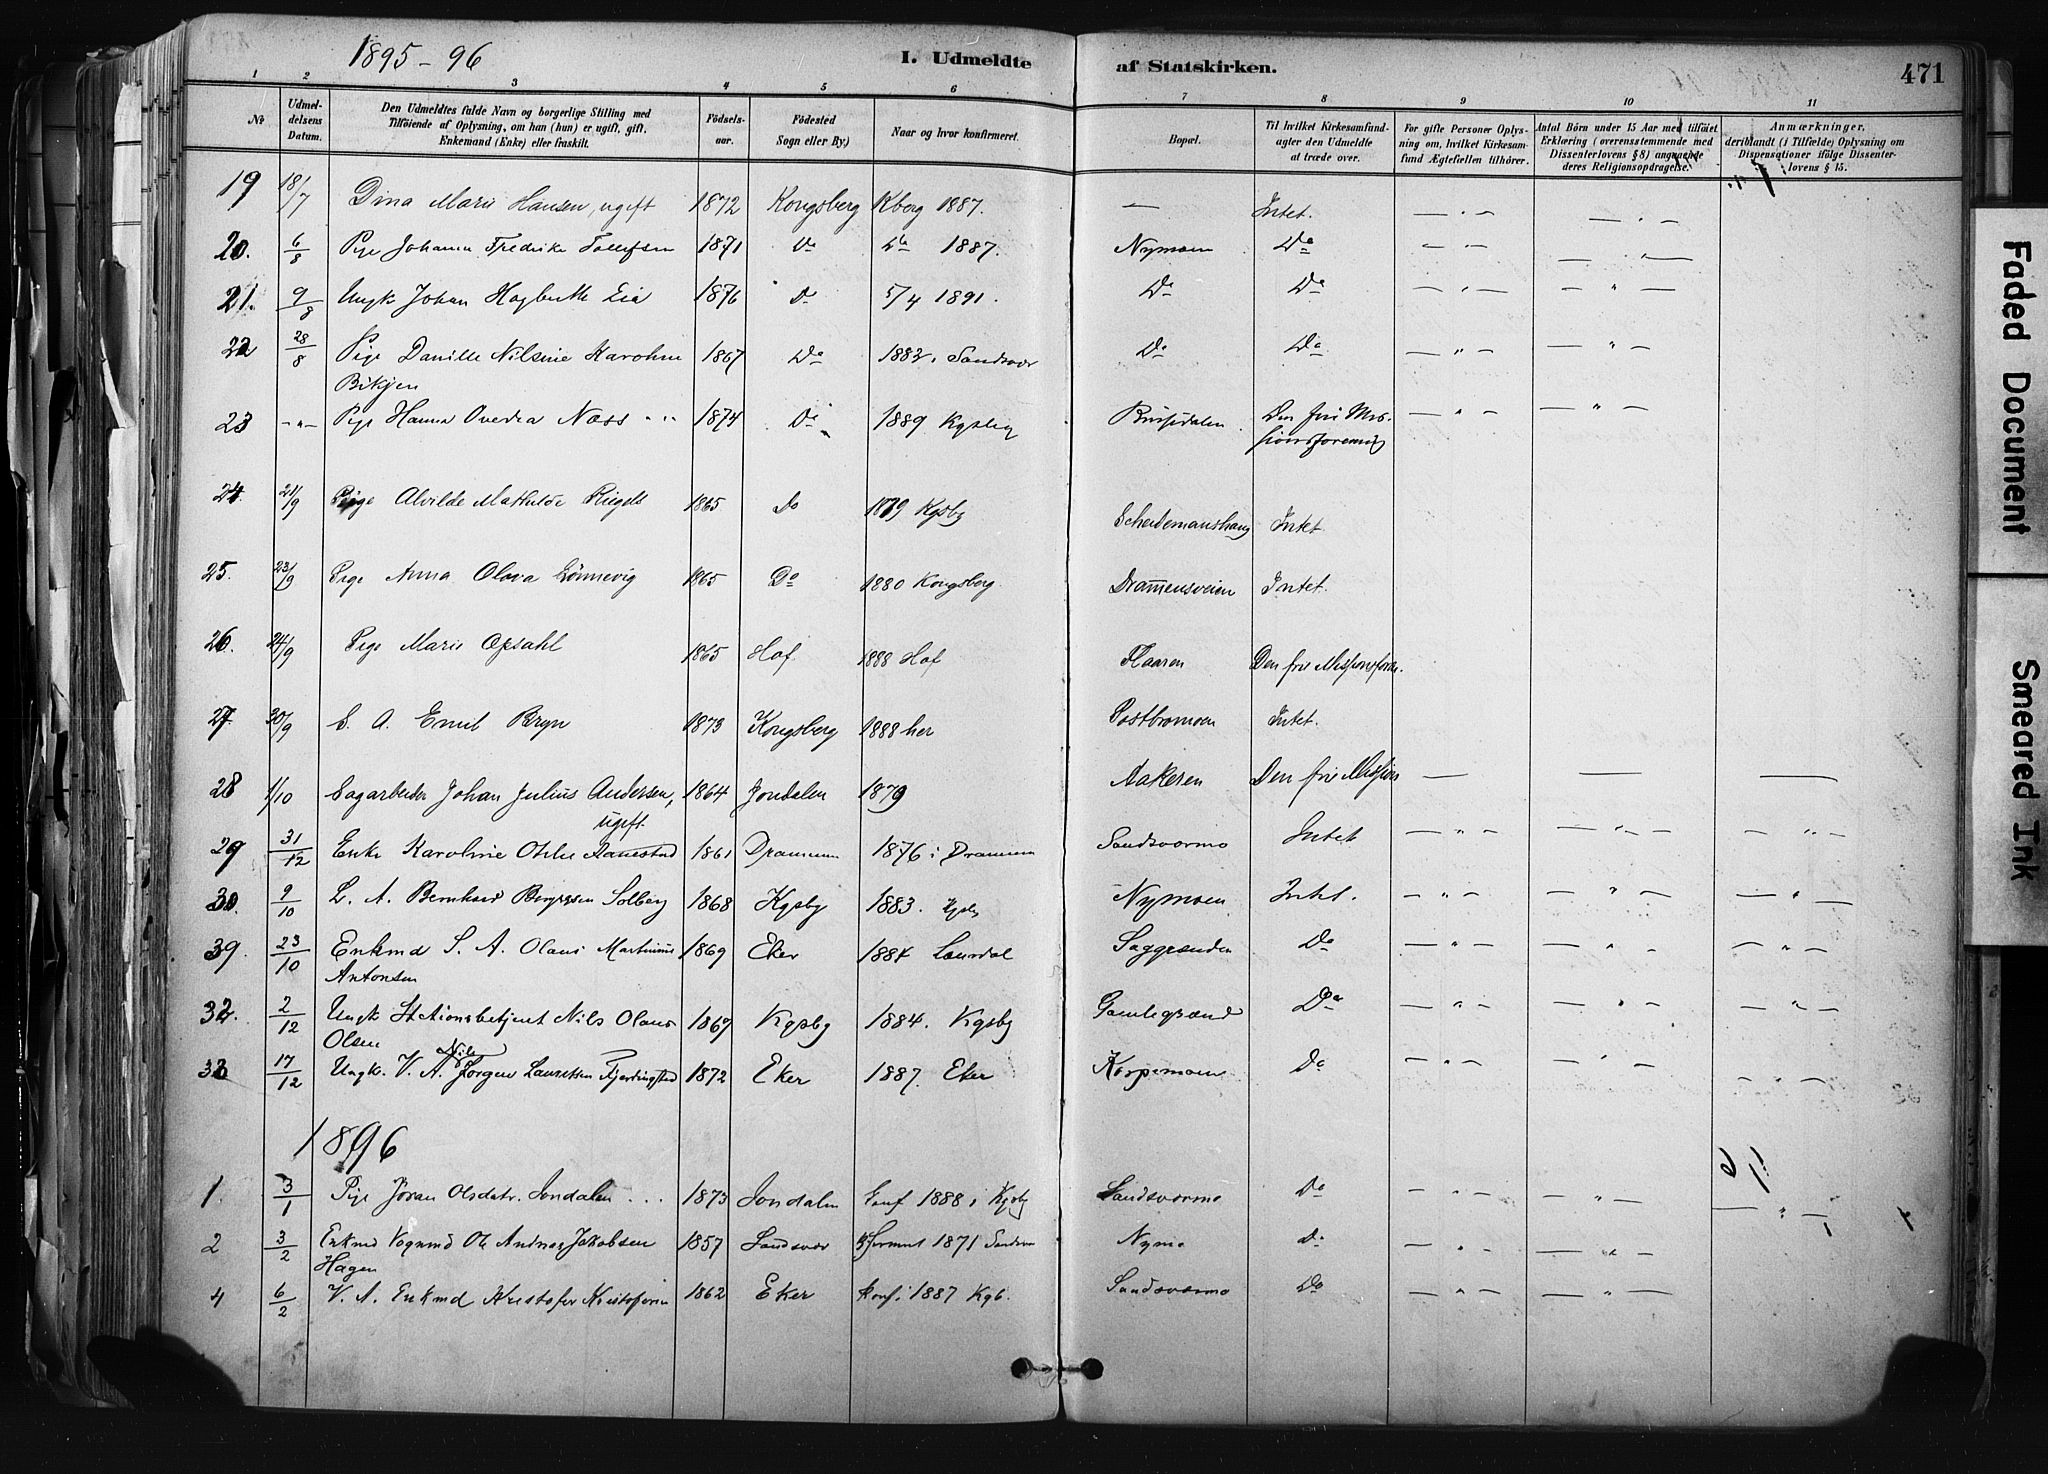 1895-96
I. Udmeldte af Statskirken.
471
1 2 3 4 5 6 7 8 9 10 11
No
Udmeldelsens Datum.
Den Udmeldtes fulde Navn og borgerlige Stilling med Tilføiende af Oplysning, om han (hun) er ugift, gift, Enkemand (Enke) eller fraskilt.
Fødselsaar.
Fødested Sogn eller By.)
Naar og hvor konfirmeret.
Bopæl.
Til hvilket Kirkesamfund agter den Udmeldte at træde over.
For gifte Personer Oplysning om, hvilket Kirkesamfund Ægtefællen tilhører.
Antal Børn under 15 Aar med tilføiet Erklæring (overensstemmende med Dissenterlovens § 8) angaaende deres Religionsopdragelse.
Anmærkninger, deriblandt (i Tilfælde) Oplysning om Dispensationer ifølge Dissenterlovens § 15.
19 18/7 Dina Marie Hansen, ugift 1872 Kongsberg Kberg 1887. — Intet. — " — — " —
20. 6/8 Pige Johanne Fredrike Tollefsen 1871 Do Do 1887. Nymoen Do — " — — " —
21. 9/8 Ungk Johan Hagbarth Lia 1876 Do 5/4 1891. Do Do — " — — " —
22 28/8 Pige Danille Nilsine Karoline 1867 Do 1882 i Sandsvær Do Do — " — — " —
Bikjen
23 -"- Pige Hanna Ovedia Næss 1874 Do 1889 Kgsberg Den frie Mis- — " — — " —
sionsforening
24. 21/9 Pige Alvilde Mathilde Riegels 1865 Do 1879 Kgsbg Scheidemanshaug Intet
25. 23/9 Pige Anna Olava Lønnevig 1865 Do 1880 Kongsberg. Dramensveien Intet.
26. 24/9 Pige Marie Opsahl 1865 Hof 1888 Hof Flaaren Den frie Missionsforen.
27. 30/9 S. A. Emil Bryn 1873 Kongsberg 1888 her Intet.
28 1/10 Sagarbeider Johan Julius Andersen, 1864 Jondalen 1879 Aakeren Den frie Mission — — —
ugift.
29 31/12 Enke Karoline Othlie 1861 Drammen 1876 i Drammen Sandsværmo Intet — " — — " — — " —
30. 9/10 L. A. Bernhard Borgesen Solberg 1868 Kgsbg 1883. Kgsbg Nymoen Intet. — " — — " — — " —
39. 23/10 Enkmd S. A. Olaus Martinius 1869 Eker 1884 Laurdal Saggrenden Do — " — — " — — " —
Antonsen
32. 2/12 Ungk Stationsbetjent Nils Olaus 1869 Kgsbg 1884. Kgsbg Gamlegrænd Do — " — — " — — " —
Olsen
33 17/12 Ungk. V. A. Nils Jørgen Lauritsen Fjerdingstad 1872 Eker 1887. Eker Korpemoen Do — " — — " — — " —
1896
1. 3/1 Pige Jøran Olsdatr. Jondalen 1873 Jondalen Conf 1888 i Kgsbg Sandsværmo Do — " — — " — — " —
2 3/2 Enkmd Vognmd Ole Andreas Jakobsen 1857 Sandsvær Kfirmert 1871 Sandsvær Nymo Do — " — — " —
Hagen
4 6/2 V. A. Enkmd Kristofer Kristofersen 1862 Eker Konf. 1887 Kgb. Sandsværmo Do — " — — " —
Faded Document
Smeared Ink